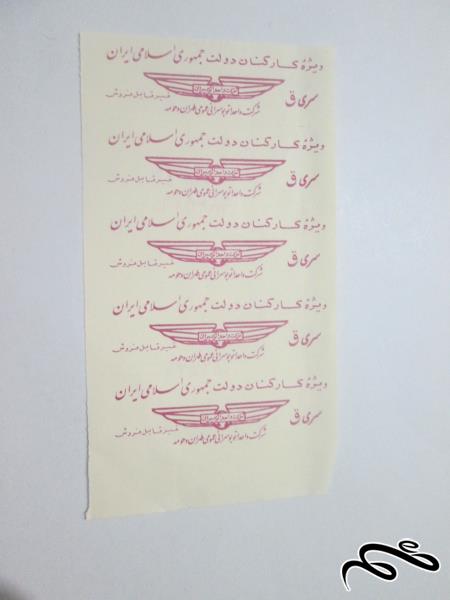 ویژهٔ کارکنان دولت جمهوری اسلامی ایران
سری ق
غیر قابل فروش
شرکت واحد اتوبوسرانی عمومی طهران و حومه
ویژهٔ کارکنان دولت جمهوری اسلامی ایران
سری ق
غیر قابل فروش
شرکت واحد اتوبوسرانی عمومی طهران و حومه
ویژهٔ کارکنان دولت جمهوری اسلامی ایران
سری ق
غیر قابل فروش
شرکت واحد اتوبوسرانی عمومی طهران و حومه
ویژهٔ کارکنان دولت جمهوری اسلامی ایران
سری ق
غیر قابل فروش
شرکت واحد اتوبوسرانی عمومی طهران و حومه
ویژهٔ کارکنان دولت جمهوری اسلامی ایران
سری ق
غیر قابل فروش
شرکت واحد اتوبوسرانی عمومی طهران و حومه